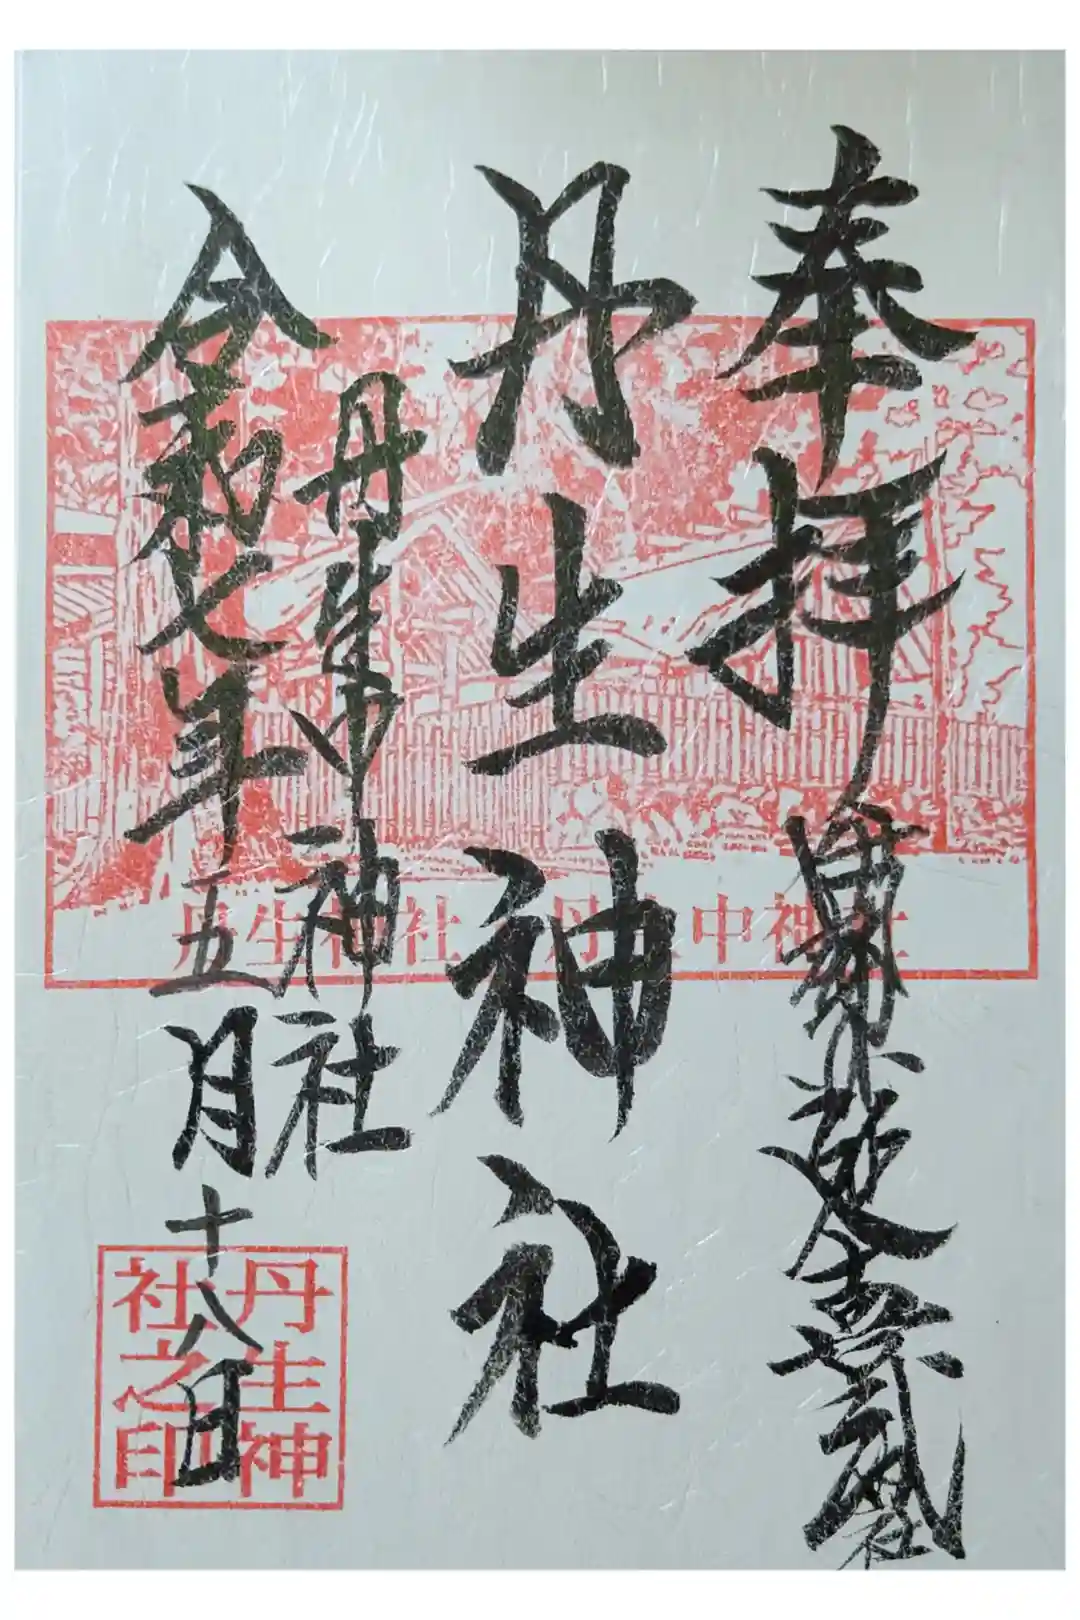 奉拝
延喜式内社
丹生神社
丹生中神社
令和七年五月十八日
丹生神社 丹生中神社
丹生神
社之印